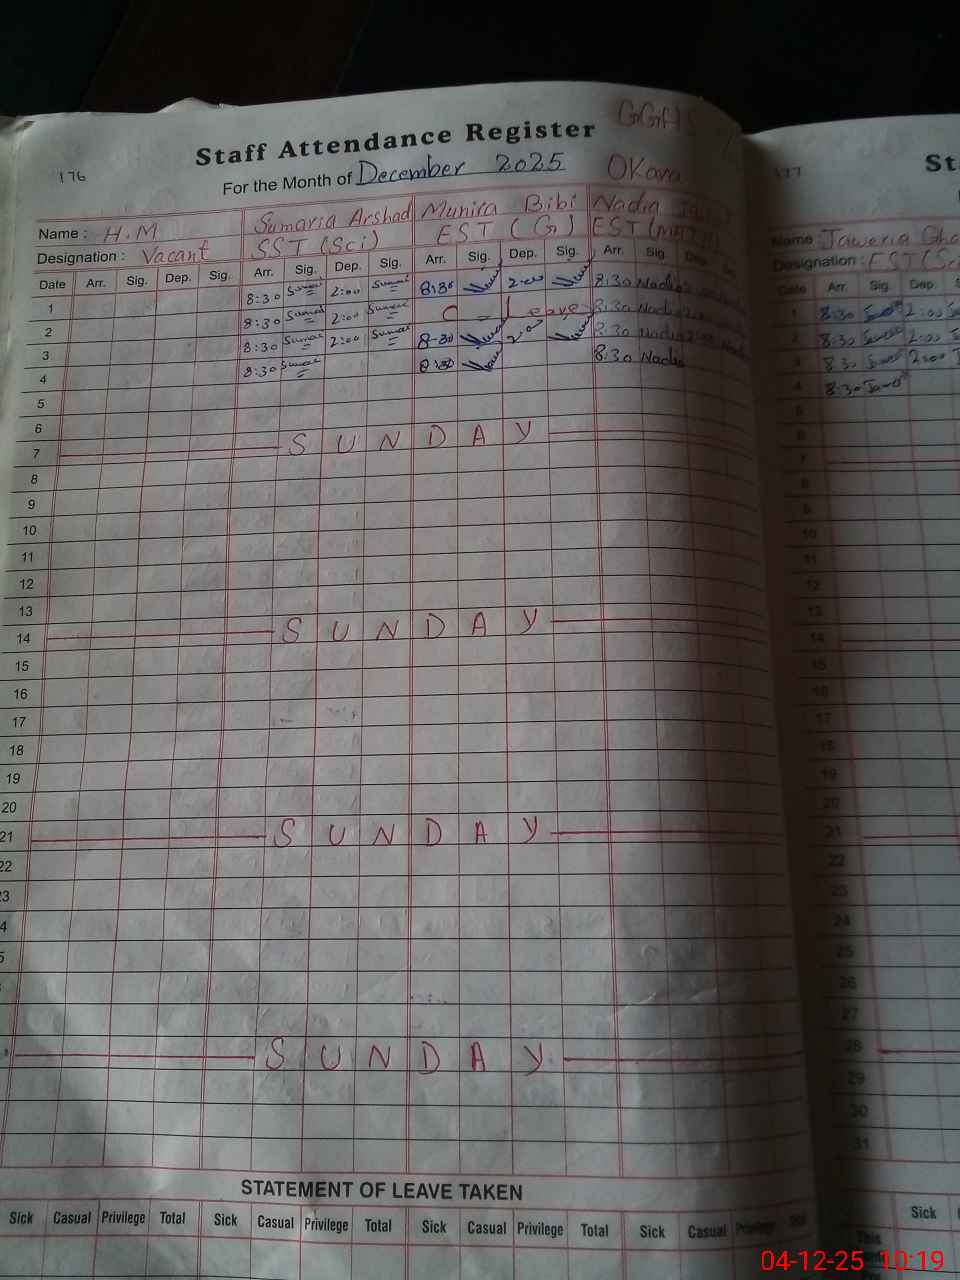 GGHS
Staff Attendance Register
176
For the Month of December 2025 OKara
Name : H.M Sumaria Arshad Munira Bibi Nadia
Designation : Vacant SST (Sci) EST (G) EST
Date Arr. Sig. Dep. Sig. Arr. Sig. Dep. Sig. Arr. Sig. Dep. Sig. Arr. Sig. Dep.
1 8:30 Sumai 2:00 Sumai 8:30 2:00 8:30 Nadia
2 8:30 Sumai 2:00 Sumai C - Leave 8:30 Nadia
3 8:30 Sumai 2:00 Sumai 8-30 2:00 8:30 Nadia
4 8:30 Sumai 8:30 8:30 Nadia
5
6
7 SUNDAY
8
9
10
11
12
13
14 SUNDAY
15
16
17
18
19
20
21 SUNDAY
22
23
4
5
SUNDAY
STATEMENT OF LEAVE TAKEN
Sick Casual Privilege Total Sick Casual Privilege Total Sick Casual Privilege Total Sick Casual Privilege
177
St
Name Jaweria
Designation : EST (Sc
Date Arr. Sig. Dep.
1 8:30 2:00
2 8:30 2:00
3 8:30 2:00
4 8:30
5
6
7
8
9
10
11
12
13
14
15
16
17
18
19
20
21
22
23
24
25
26
27
28
29
30
31
Sick
This
04-12-25 10:19